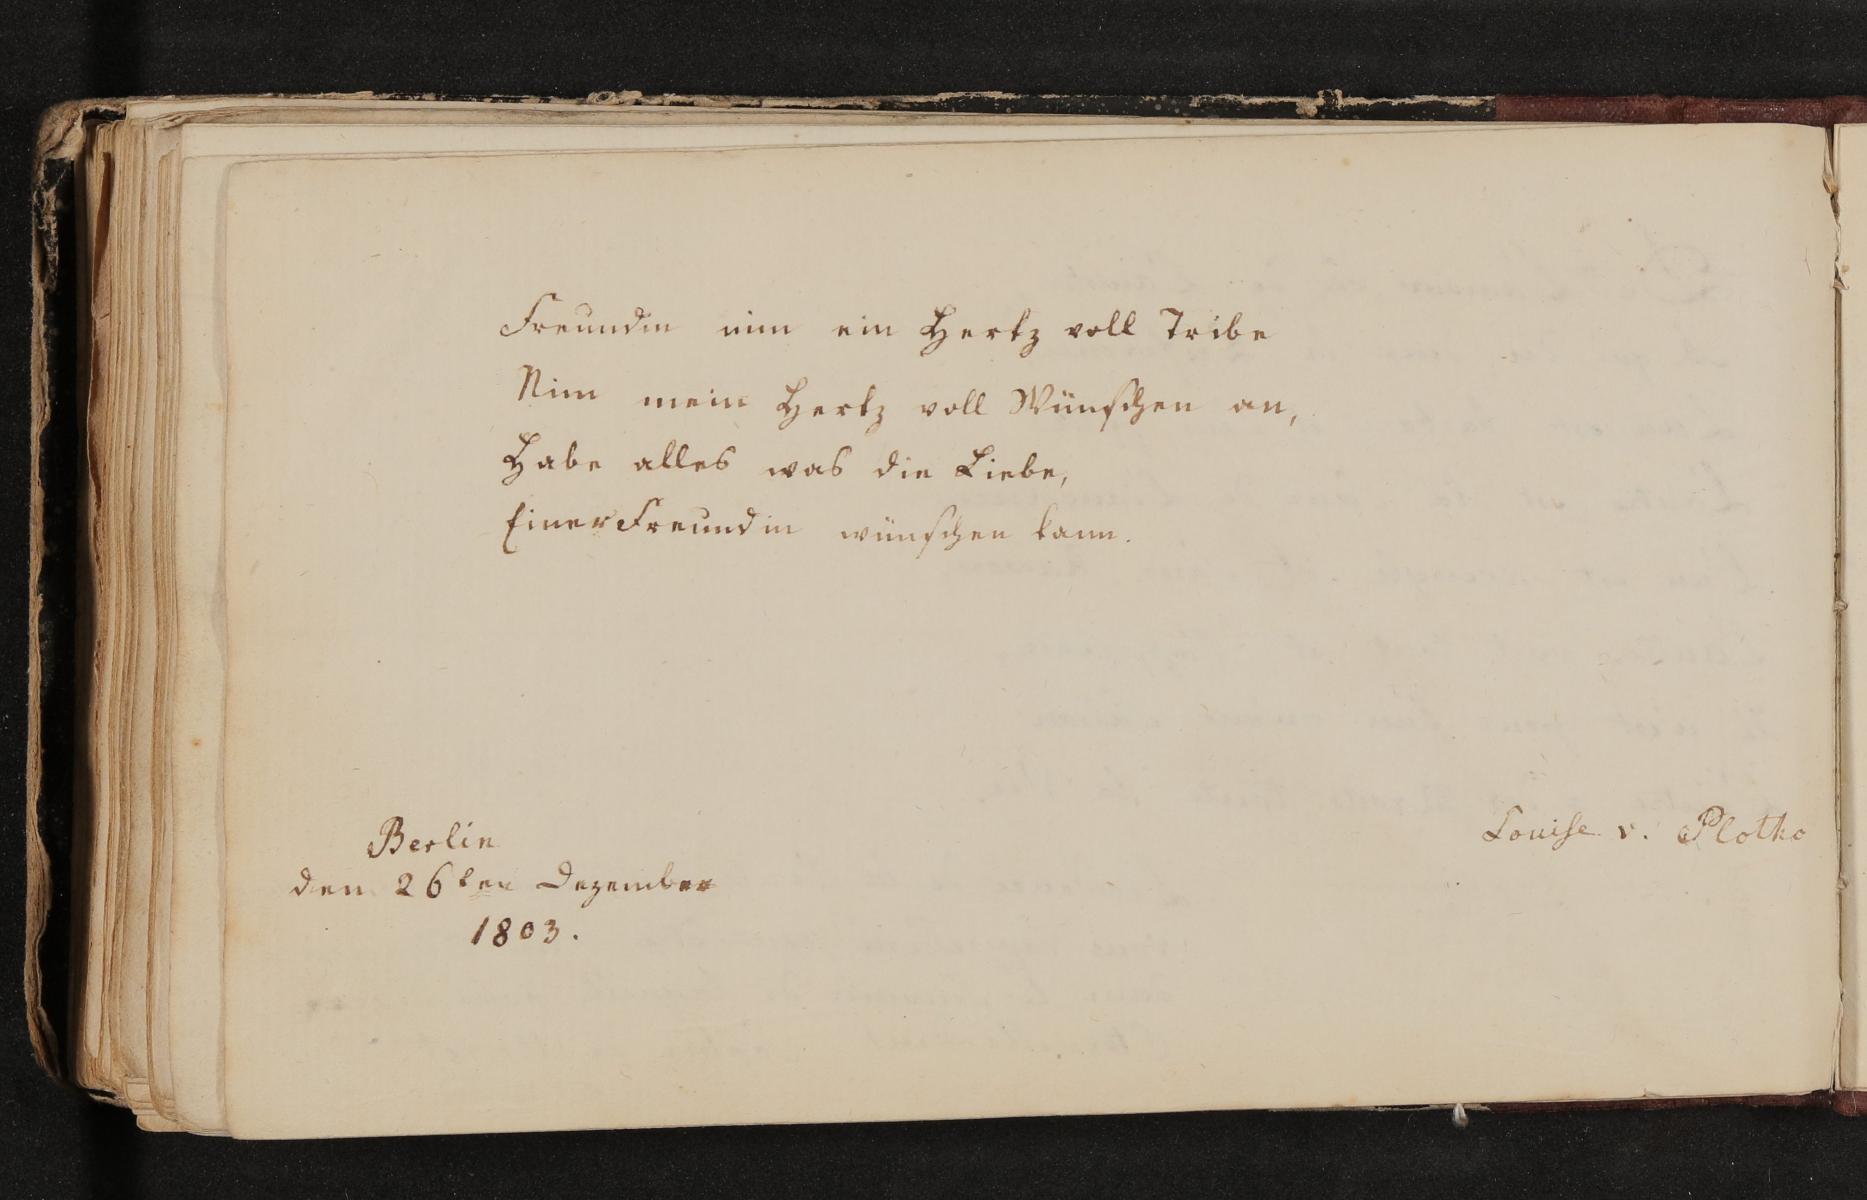 Freundin nim ein Hertz voll Tribe
Nim mein Hertz voll Wünschen an,
Habe alles was die Liebe,
Einer Freundin wünschen kann.
Berlin
den 26ten Dezember
1803.
Louise v. Plotho